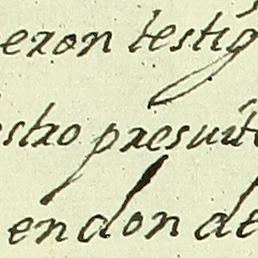 eron testig
stro presuite
en don de